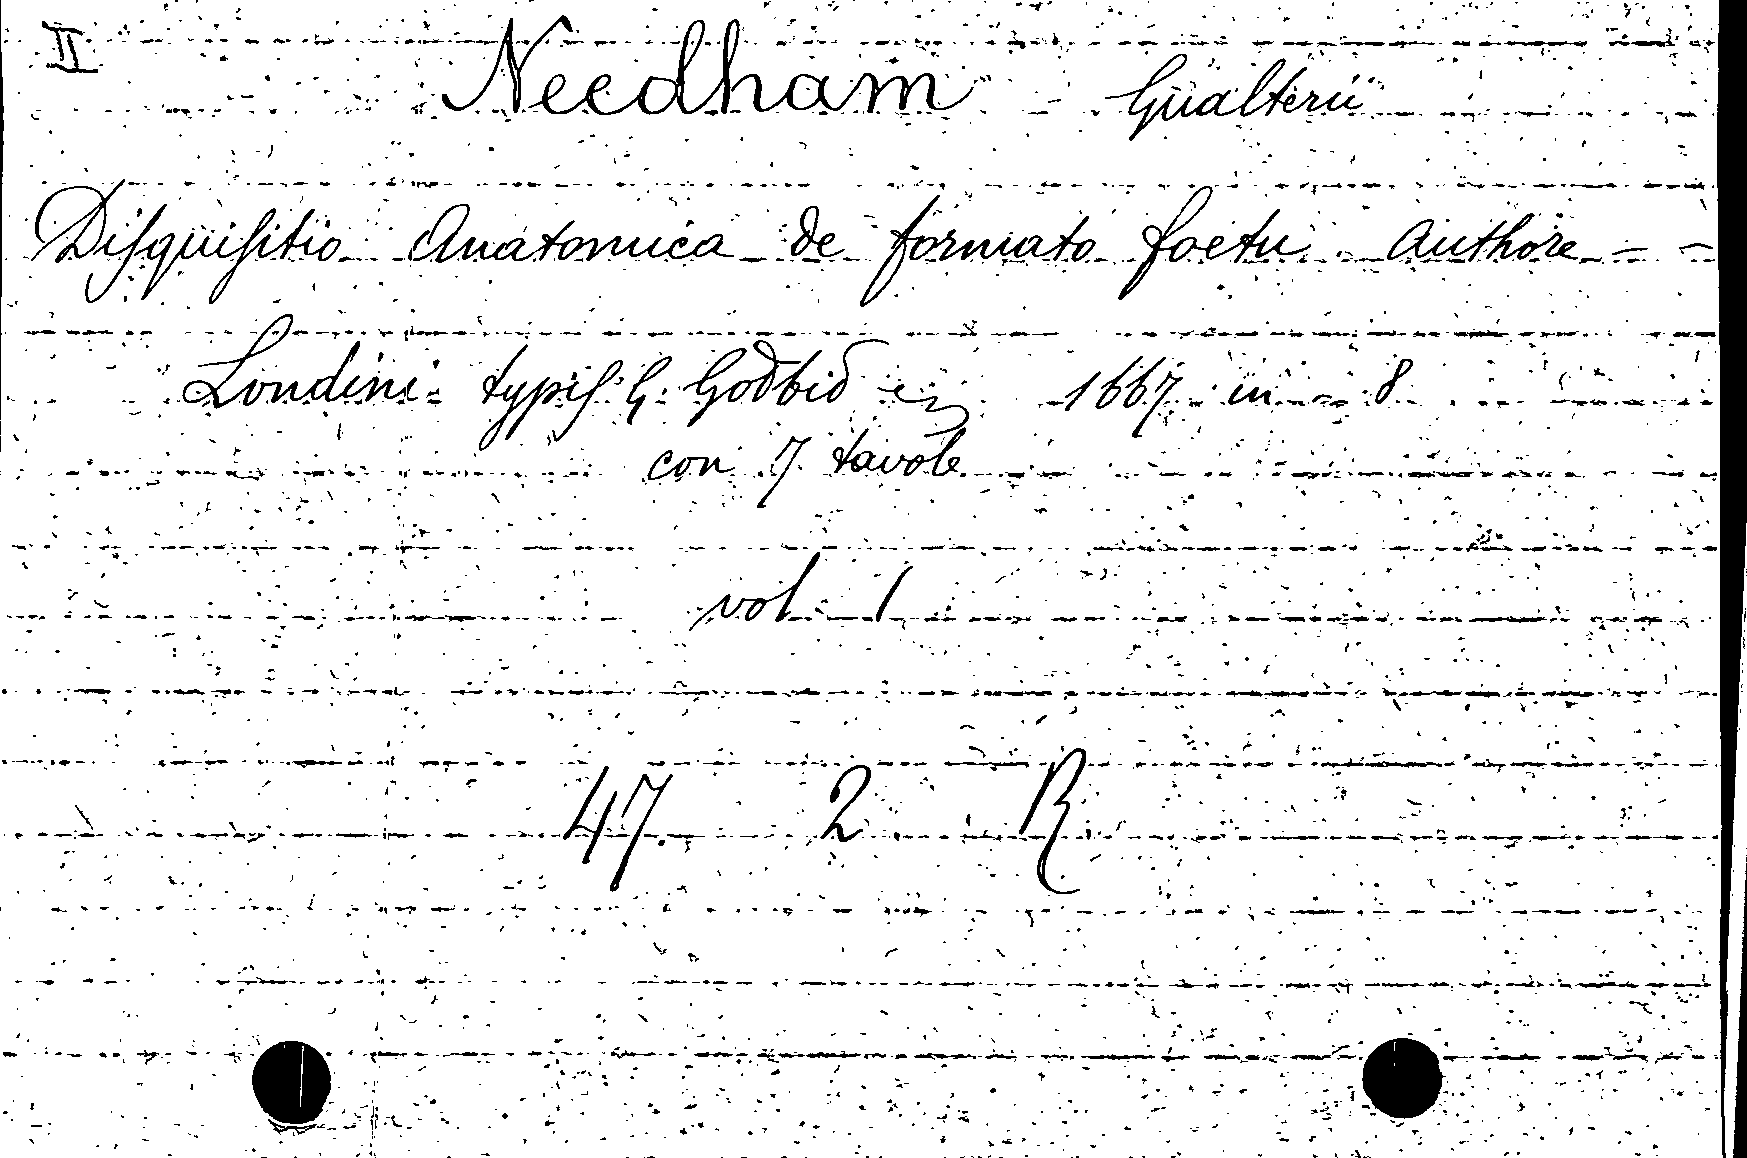 II
Needham Gualterii
Disquisitio Anatomica de formato foetu. Authore - -
Londini - typis G. Godbid 1667 in - 8
con 7 tavole
vol. 1
47. 2 R